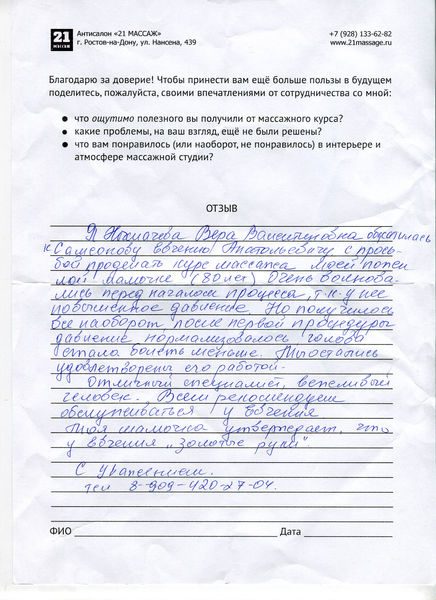 21
МАССАЖ
Антисалон «21 МАССАЖ»
г. Ростов-на-Дону, ул. Нансена, 439
+7 (928) 133-62-82
www.21massage.ru
Благодарю за доверие! Чтобы принести вам ещё больше пользы в будущем
поделитесь, пожалуйста, своими впечатлениями от сотрудничества со мной:
• что ощутимо полезного вы получили от массажного курса?
• какие проблемы, на ваш взгляд, ещё не были решены?
• что вам понравилось (или наоборот, не понравилось) в интерьере и
атмосфере массажной студии?
ОТЗЫВ
Я Вера Валентиновна обратилась
к Самсонову Евгению Анатольевичу с прось-
бой проделать курс массажа моей пожи
лой мамочке (80 лет) Очень волнова-
лись перед началом процесса, т.к у нее
повышенное давление. Но получилось
все наоборот, после первой процедуры
давление нормализовалось голова
стала болеть меньше. Мы остались
удовлетворены его работой.
Отличный специалист, вежливый
человек. Всем рекомендуем
обслуживаться у Евгения
Моя мамочка утверждает, что
у Евгения „золотые руки"
С уважением.
тел 8-909-420-27-04.
ФИО Дата